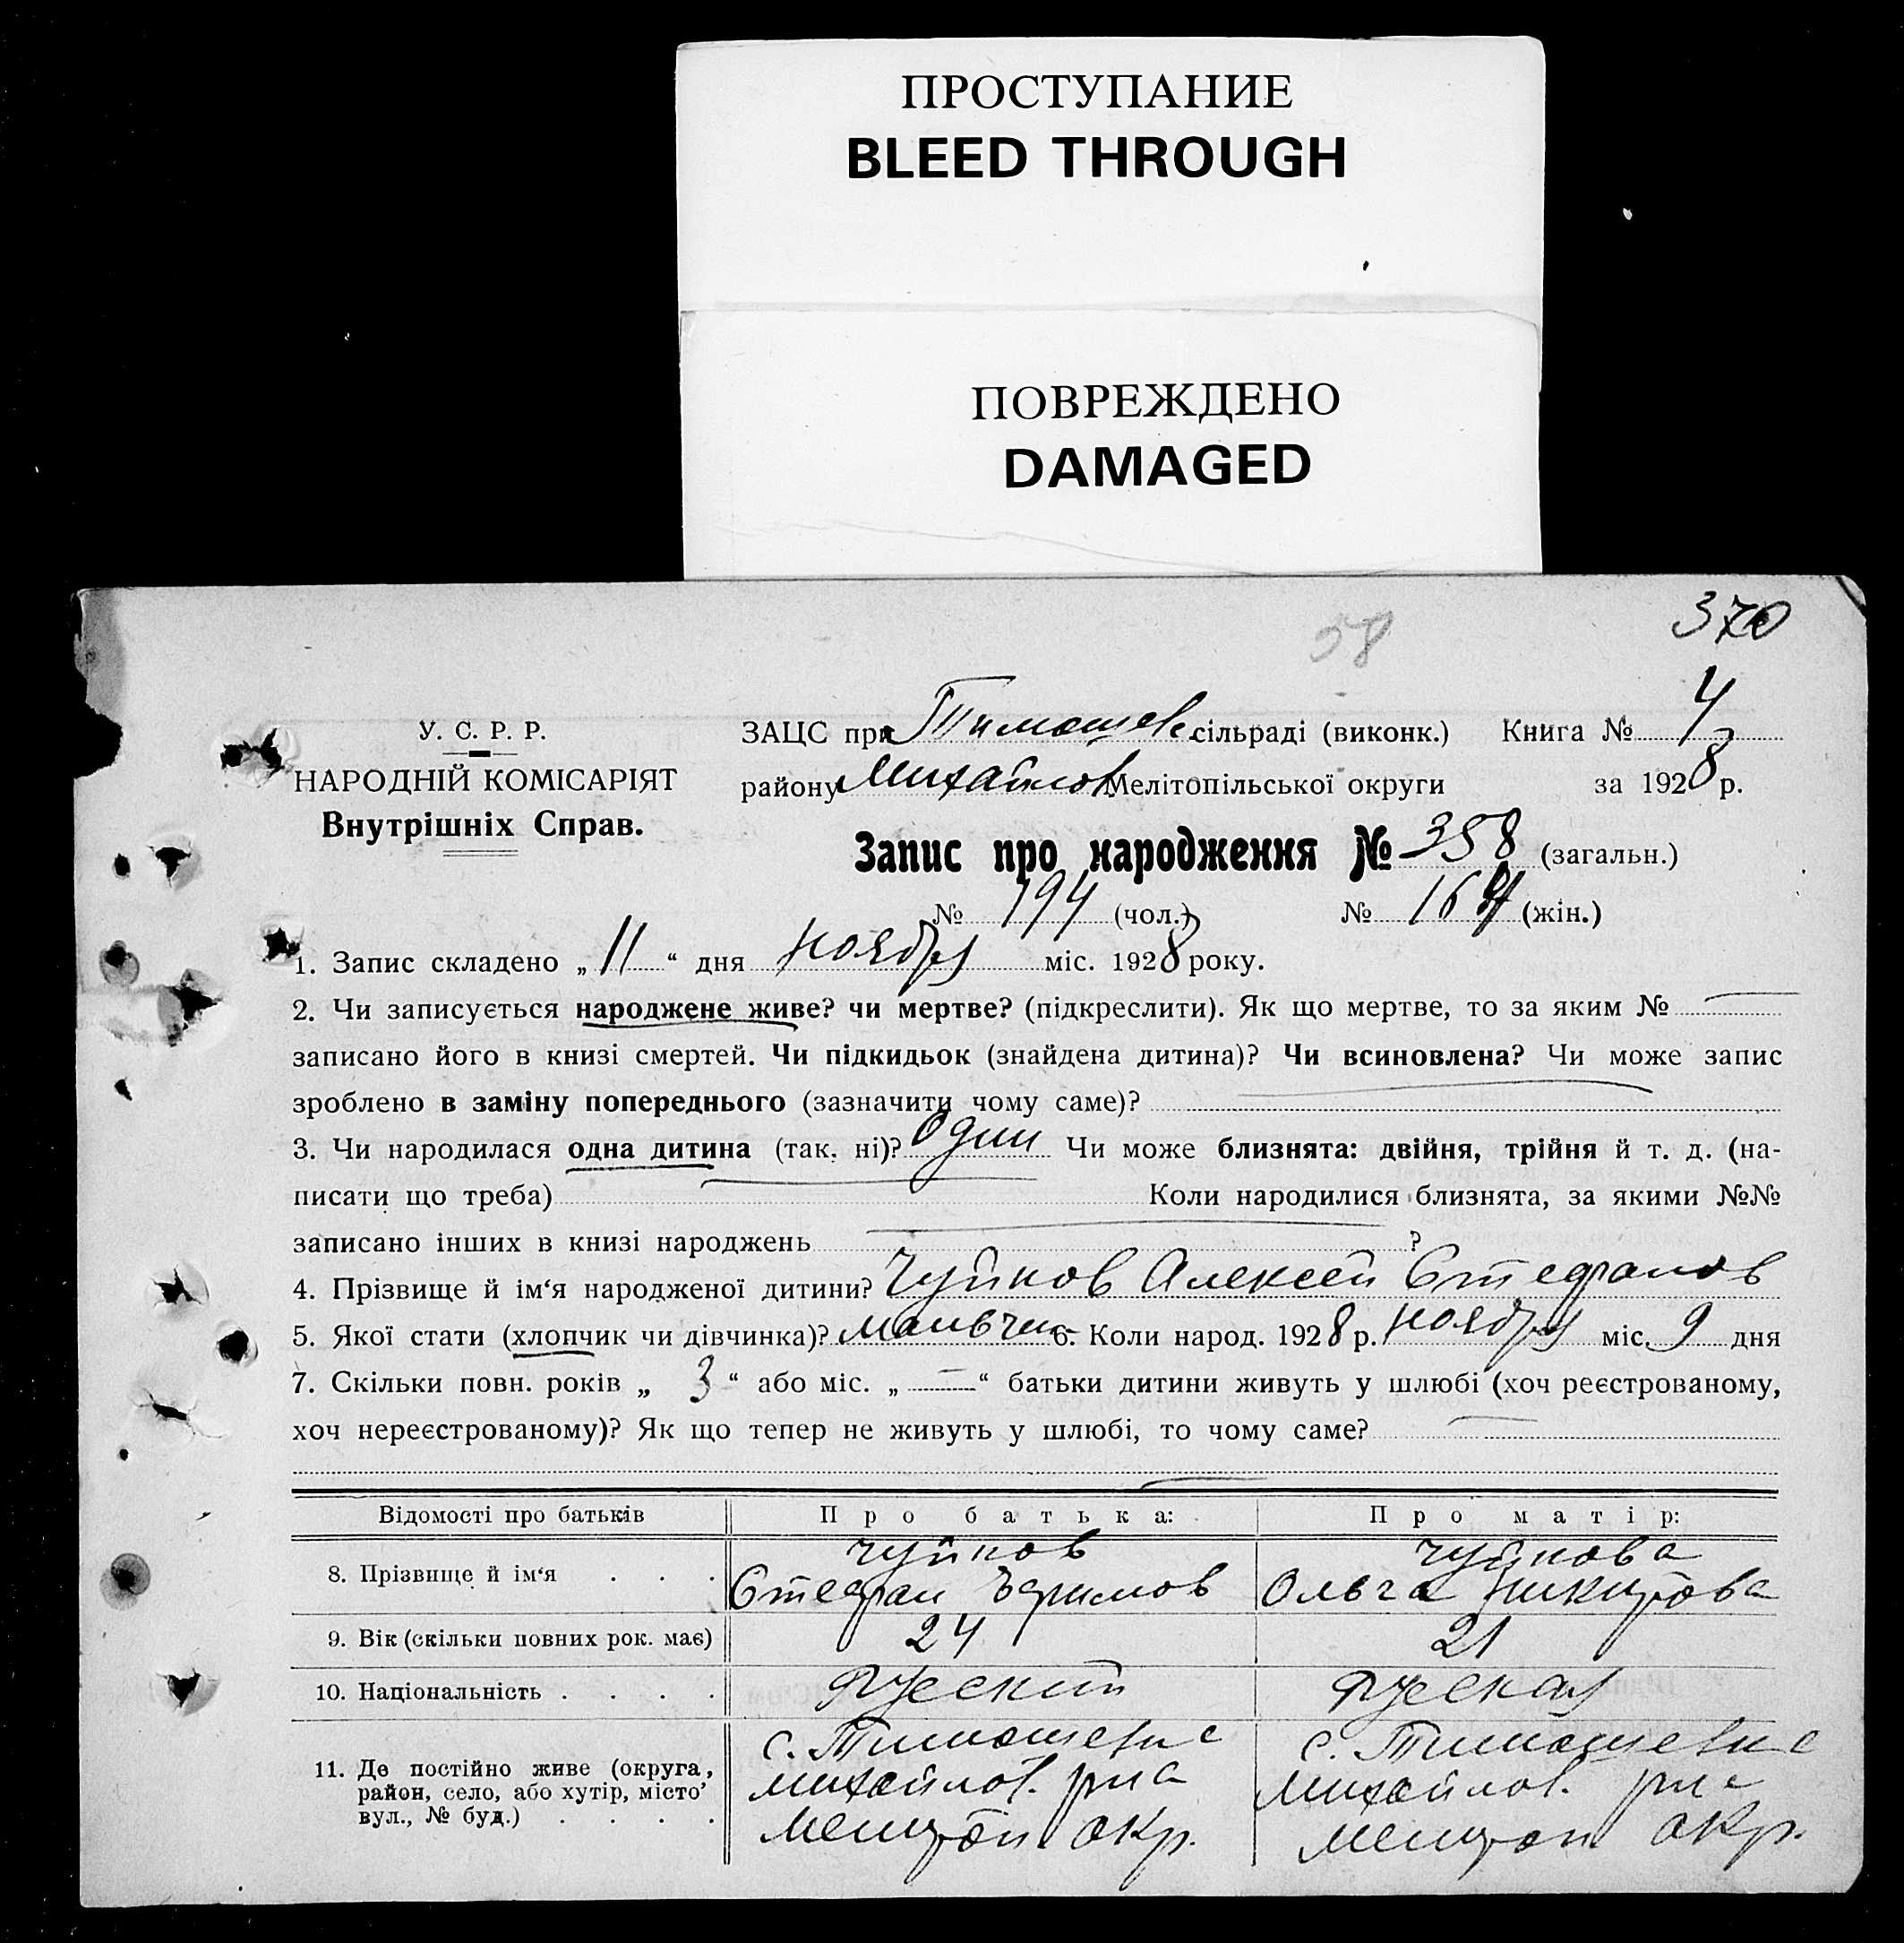 ПРОСТУПАНИЕ
BLEED THROUGH
ПОВРЕЖДЕНО
DAMAGED
370
58
У. С. Р. Р.
НАРОДНІЙ КОМІСАРІЯТ
Внутрішніх Справ.
ЗАЦС при Тимошевс. сільраді (виконк.) Книга № 4
району Михайлов. Мелітопільської округи за 1928 р.
Запис про народження № 358 (загальн.)
№ 194 (чол.) № 164 (жін.)
1. Запис складено „ 11 “ дня ноября міс. 1928 року.
2. Чи записується народжене живе? чи мертве? (підкреслити). Як що мертве, то за яким № —
записано його в книзі смертей. Чи підкидьок (знайдена дитина)? Чи всиновлена? Чи може запис
зроблено в заміну попереднього (зазначити чому саме)?
3. Чи народилася одна дитина (так, ні)? Один Чи може близнята: двійня, трійня й т. д. (на-
писати що треба) Коли народилися близнята, за якими №№
записано інших в книзі народжень ?
4. Прізвище й ім‘я народженої дитини? Чуйков Алексей Стефанов
5. Якої стати (хлопчик чи дівчинка)? мальчик 6. Коли народ. 1928 р. ноября міс. 9 дня
7. Скільки повн. років „ 3 “ або міс. „ — “ батьки дитини живуть у шлюбі (хоч реєстрованому,
хоч нереєстрованому)? Як що тепер не живуть у шлюбі, то чому саме? —
Відомості про батьків Про батька: Про матір:
8. Прізвище й ім‘я . . . Чуйков Стефан Ефимов Чуйкова Ольга Никитова
9. Вік (скільки повних рок. має) 24 21
10. Національність . . . . Руский Руская
11. Де постійно живе (округа, район, село, або хутір, місто, вул., № буд.) . . . .
с. Тимошевка
Михайлов. р-на
Мелитоп окр.
с. Тимошевка
Михайлов. р-на
Мелитоп окр.